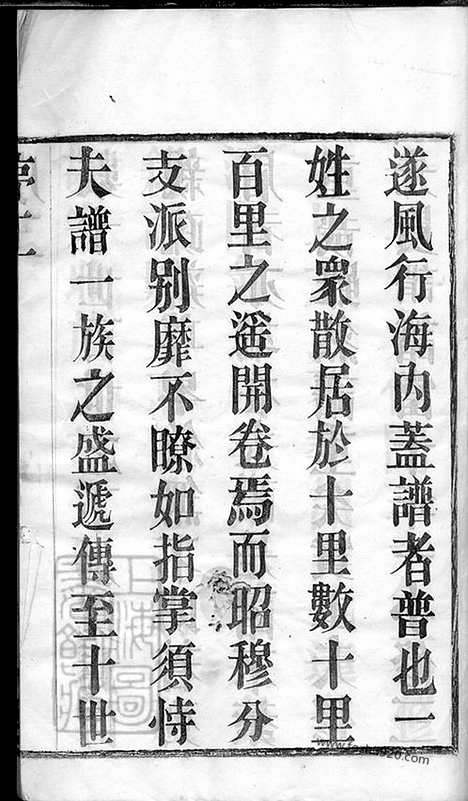 遂風行海内蓋譜者普也一
姓之衆散居於十里數十里
百里之遥開卷焉而昭穆分
支派别靡不瞭如指掌須恃
夫譜一族之盛遞傳至十世
序二